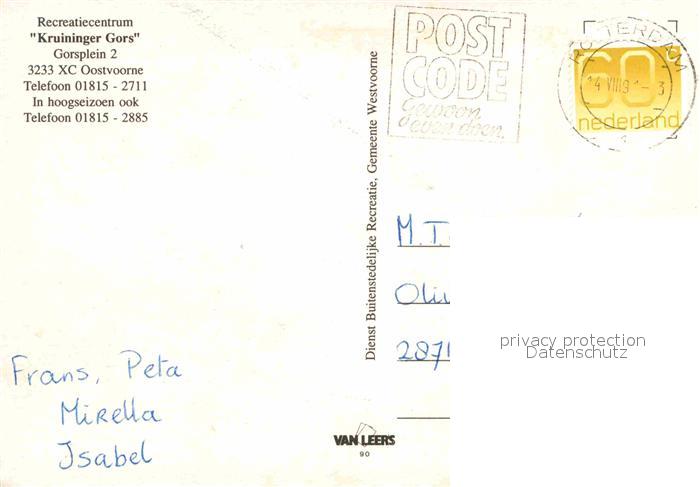 Recreatiecentrum
"Kruininger Gors"
Gorsplein 2
3233 XC Oostvoorne
Telefoon 01815 - 2711
In hoogseizoen ook
Telefoon 01815 - 2885
POST
CODE
Gewoon
even doen.
ROTTERDAM
14 VIII 9
3
4
60
nederland
Dienst Buitenstedelijke Recreatie, Gemeente Westvoorne
M.T.
Oli
2871
privacy protection
Datenschutz
Frans, Peta
Mirella
Isabel
VAN LEER'S
90